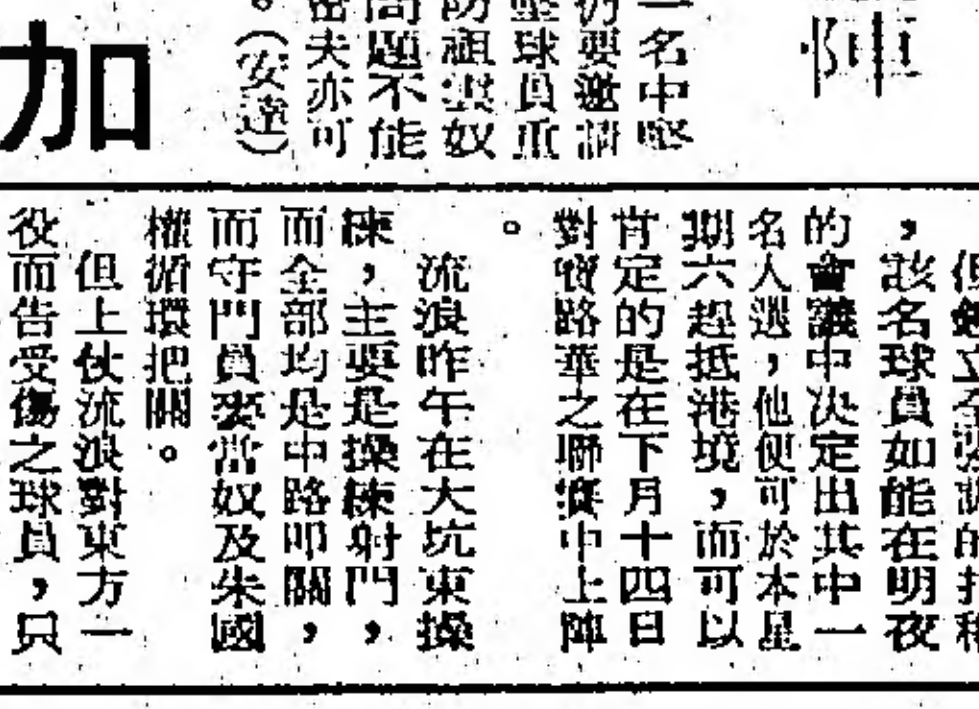 陣
一名中堅
仍要邀請
堅球員重
防祖雲奴
問題不能
密夫亦可
。（安達）
加
，該名球員如能在明夜
的會議中決定出其中一
名人選，他便可於本星
期六趕抵港境，而可以
肯定的是在下月十四日
對寶路華之聯賽中上陣
。
流浪昨午在大坑東操
練，主要是操練射門，
而全部均是中路叩關，
而守門員麥當奴及朱國
權循環把關。
但上仗流浪對東方一
役而告受傷之球員，只